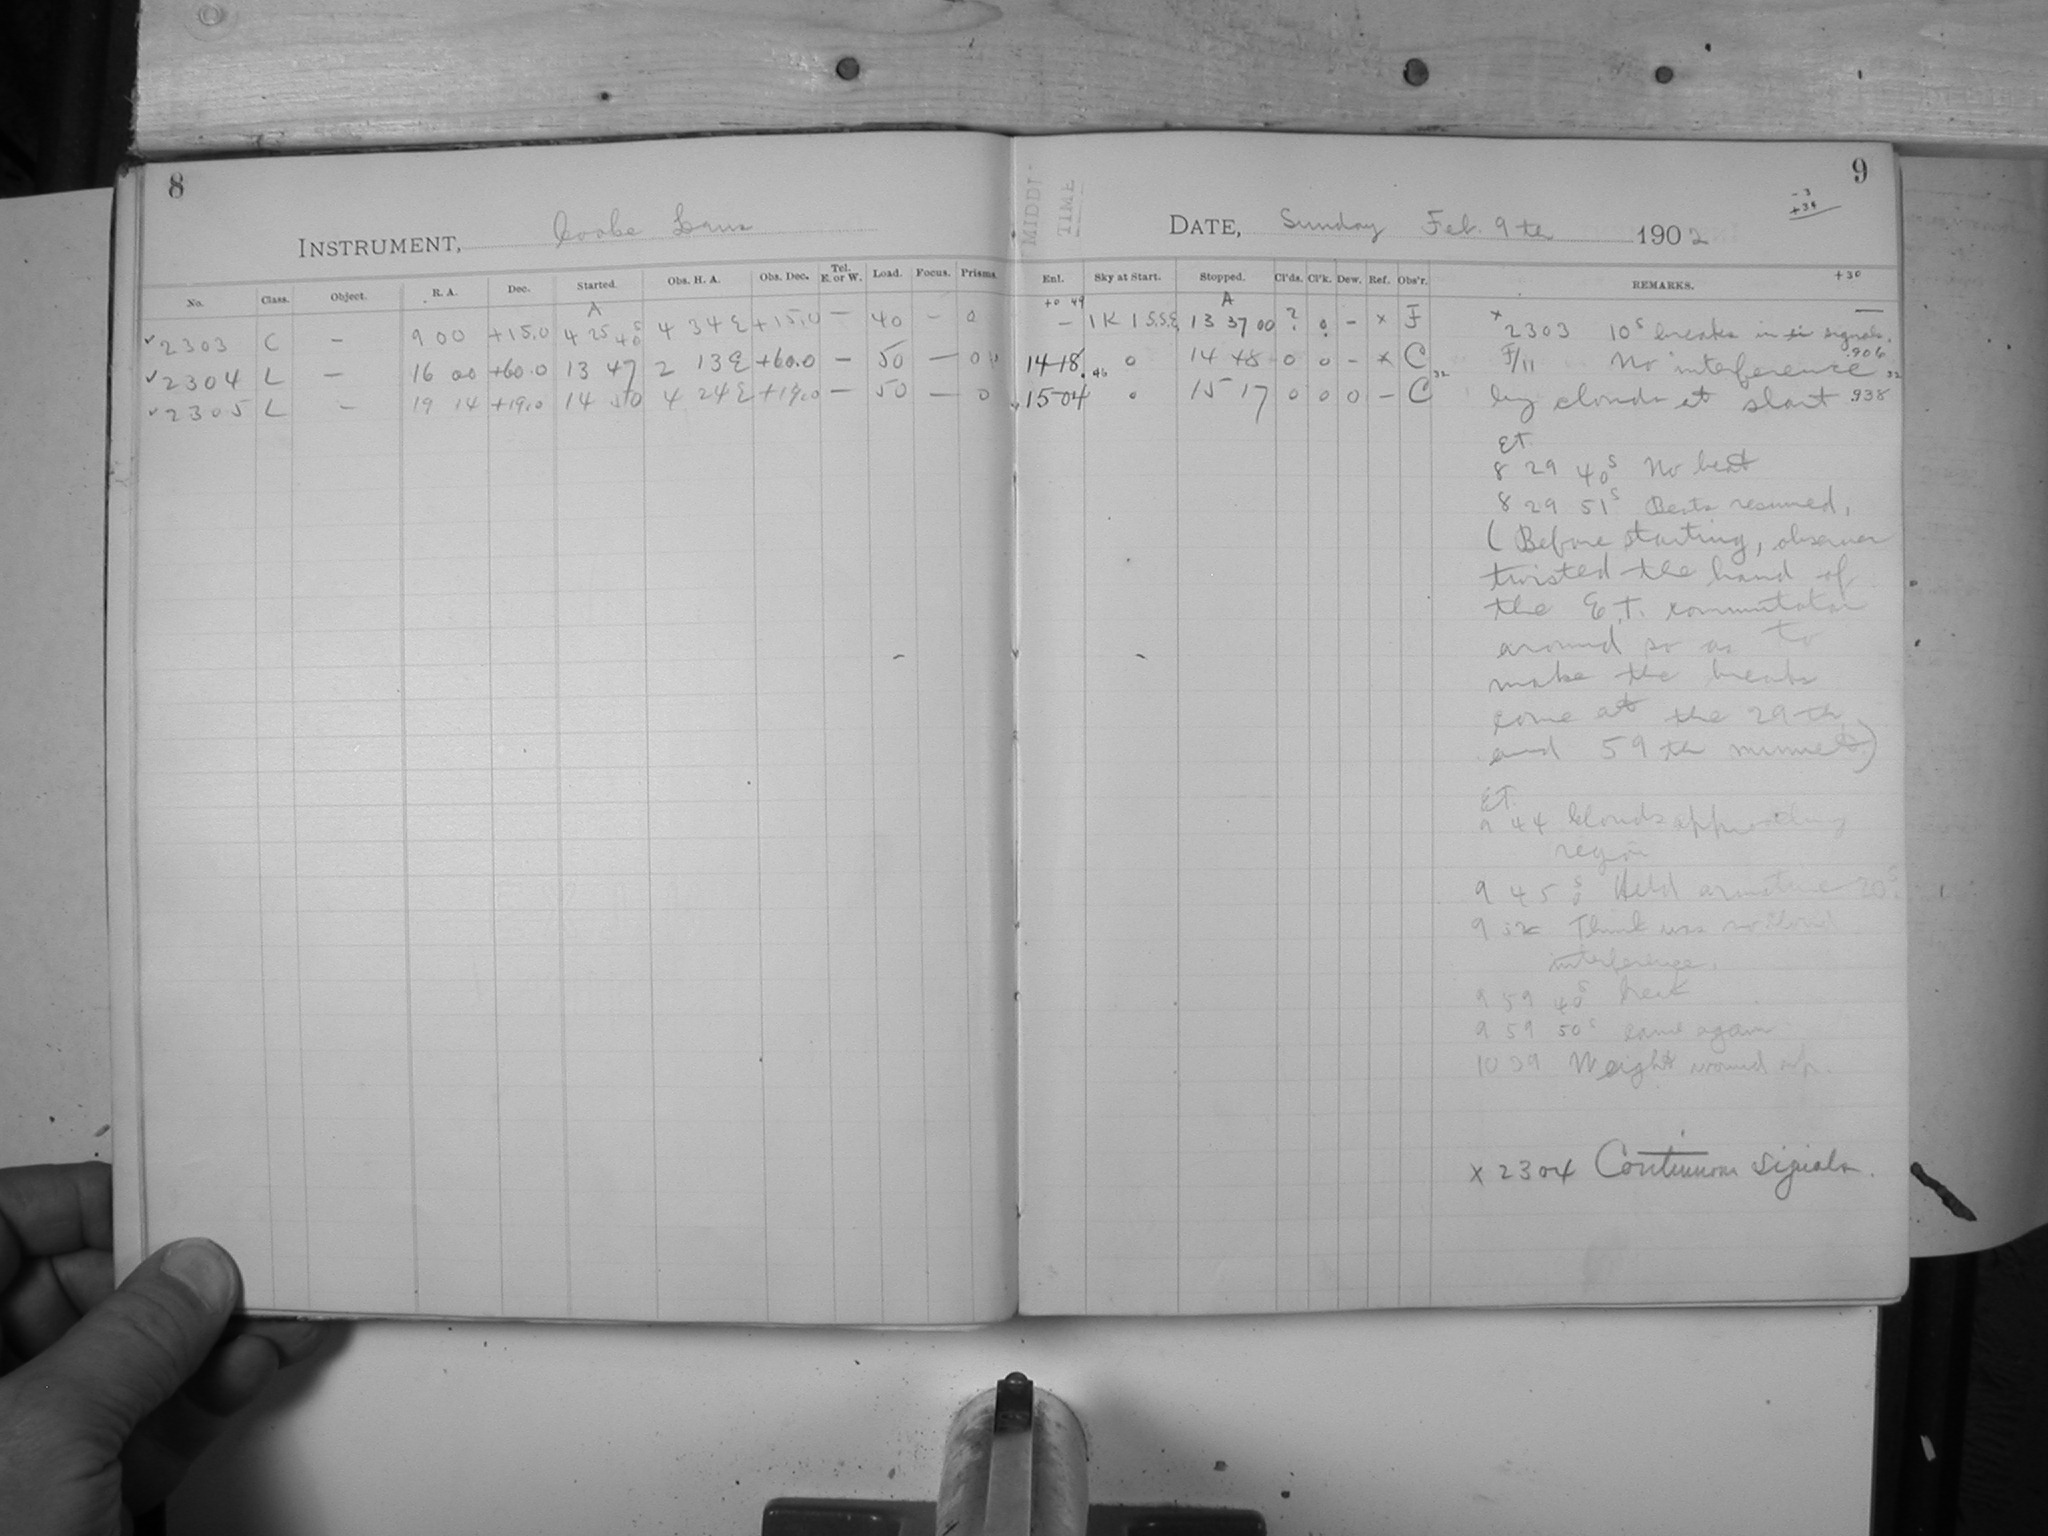 8
INSTRUMENT, Cooke Lens
No. Class. Object. R. A. Dec. Started. Obs. H. A. Obs. Dec. Tel. E. or W. Load. Focus. Prisms.
A
✓2303 C — 9 00 +15.0 4 25 40s 4 34 E +15.0 — 40 — 0
✓2304 L — 16 00 +60.0 13 47 2 13 E +60.0 — 50 — 0
✓2305 L — 19 14 +19.0 14 50 4 24 E +19.0 — 50 — 0
9
MIDDL
TIME
-3
+34
DATE, Sunday Feb. 9th 1902
+30
Enl. Sky at Start. Stopped. Cl'ds. Cl'k. Dew. Ref. Obs'r. REMARKS.
+0 49 A
— 1K 1 S.S.E. 13 37 00 ? 0 - x F
14 18.46 0 14 48 0 0 - x C
15 04 0 15 17 0 0 0 - C
x 2303 10s breaks in signals.
F/11 No interference
by clouds at start
.906
32
.938
E.T.
8 29 40s No beat
8 29 51s Beats resumed,
(Before starting, observer
twisted the hand of
the E.T. commutator
around so as to
make the breaks
come at the 29th
and 59th minute)
E.T.
9 44 Clouds approaching
region
9 45 0s Held armature 20s.
9 52 Think was no cloud
interference.
9 59 40s break
9 59 50s came again
10 39 Weight wound up.
x 2304 Continuous signals.